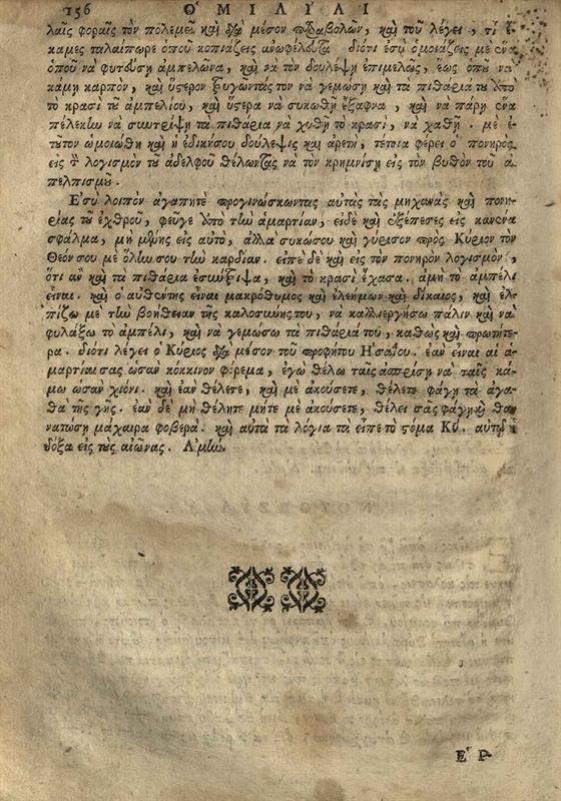 156 Ὁ ΜΙΛΙΑΙ
λαῖς φοραῖς τὸν πολεμεῖ καὶ διὰ μέσον παραβολῶν, καὶ τοῦ λέγει, τί ἔ-
καμες ταλαίπωρε ὁποῦ κοπιάζεις ἀνωφέλευτα διότι ἐσὺ ὁμοιάζεις μὲ ἕνα
ὁποῦ νὰ φυτεύσῃ ἀμπελῶνα, καὶ νὰ τὸν δουλέψῃ ἐπιμελῶς, ἕως ὁποῦ νὰ
κάμῃ καρπὸν, καὶ ὕστερον τρυγῶντας τον νὰ γεμώσῃ καὶ τὰ πιθάρια του ἀπὸ
τὸ κρασὶ τοῦ ἀμπελιοῦ, καὶ ὕστερα νὰ συκωθῇ ἔξαφνα, καὶ νὰ πάρῃ ἕνα
πέλεκυν νὰ συντρίψῃ τὰ πιθάρια νὰ χυθῇ τὸ κρασὶ, νὰ χαθῇ. μὲ ἐ-
τοῦτον ὡμοιώθη καὶ ἡ ἐδικήσου δούλεψις καὶ ἀρετὴ, τέτοια φέρει ὁ πονηρὸς
εἰς τὸν λογισμὸν τοῦ ἀδελφοῦ θέλωντας νὰ τὸν κρημνίσῃ εἰς τὸν βυθὸν τοῦ ἀ-
πελπισμοῦ.
Ἐσὺ λοιπὸν ἀγαπητὲ προγινώσκωντας αὐταῖς ταῖς μηχαναῖς καὶ πονη-
ρίας τοῦ ἐχθροῦ, φεῦγε ἀπὸ τὴν ἁμαρτίαν, εἰδὲ καὶ ἐξέπεσες εἰς κανένα
σφάλμα, μὴ μείνῃς εἰς αὐτὸ, ἀλλὰ συκώσου καὶ γύρισον πρὸς Κύριον τὸν
Θεόν σου μὲ ὅλην σου τὴν καρδίαν. εἰπὲ δὲ καὶ εἰς τὸν πονηρὸν λογισμὸν,
ὅτι ἂν καὶ τὰ πιθάρια ἐσύντριψα, καὶ τὸ κρασὶ ἔχασα. ἀμὴ τὸ ἀμπέλι
εἶναι. καὶ ὁ αὐθέντης εἶναι μακρόθυμος καὶ ἐλεήμων καὶ δίκαιος, καὶ ἐλ-
πίζω μὲ τὴν βοήθειαν τῆς καλοσύνης του, νὰ καλλιεργήσω πάλιν καὶ νὰ
φυλάξω τὸ ἀμπέλι, καὶ νὰ γεμώσω τὰ πιθάρια του, καθὼς καὶ πρωτήτε-
ρα. διότι λέγει ὁ Κύριος διὰ μέσον τοῦ προφήτου Ἡσαΐου. ἐὰν εἶναι αἱ ἁ-
μαρτίαι σας ὡσὰν κόκκινον φόρεμα, ἐγὼ θέλω ταῖς ἀσπρίσῃ νὰ ταῖς κά-
μω ὡσὰν χιόνι. καὶ ἐὰν θέλετε, καὶ μὲ ἀκούσετε, θέλετε φάγῃ τὰ ἀγα-
θὰ τῆς γῆς. ἐὰν δὲ μὴ θέλητε μήτε μὲ ἀκούσετε, θέλει σᾶς φάγῃ καὶ θα-
νατώσῃ μάχαιρα φοβερά. καὶ αὐτὰ τὰ λόγια τὰ εἶπε τὸ στόμα Κυ. αὐτῷ ἡ
δόξα εἰς τοὺς αἰῶνας. Ἀμήν.
Ε Ρ